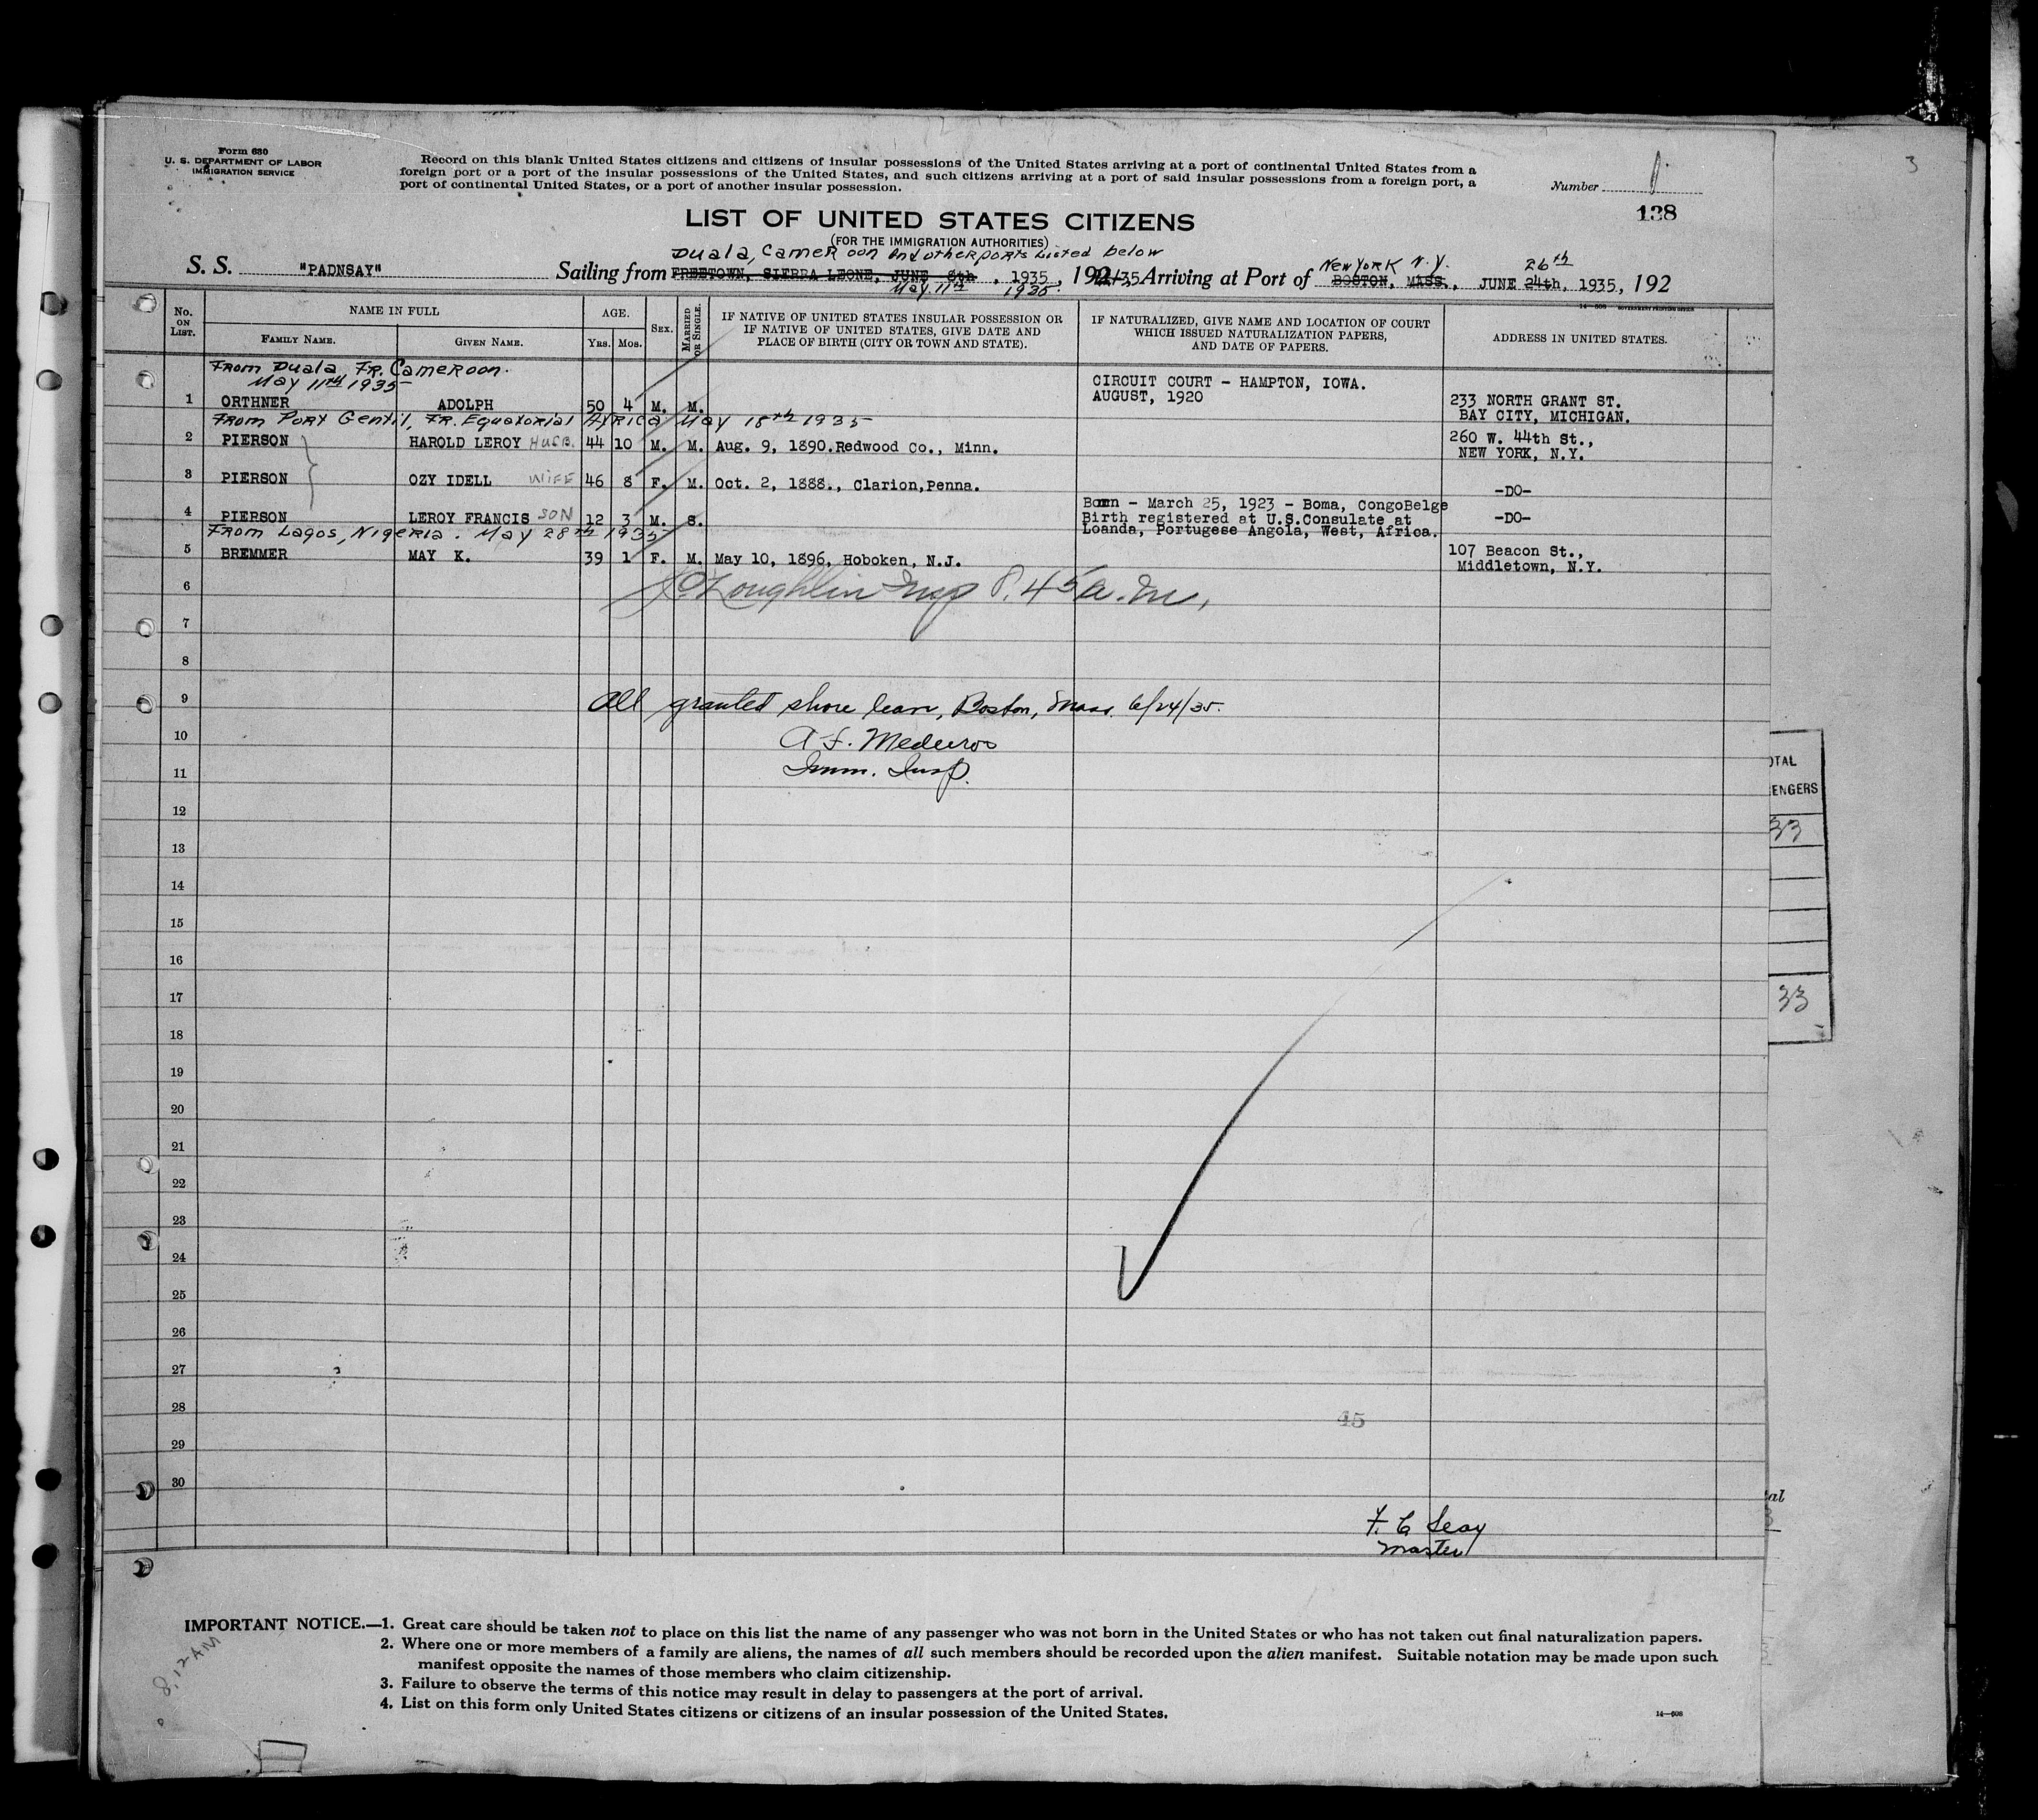 Form 630
U. S. DEPARTMENT OF LABOR
IMMIGRATION SERVICE
Record on this blank United States citizens and citizens of insular possessions of the United States arriving at a port of continental United States from a
foreign port or a port of the insular possessions of the United States, and such citizens arriving at a port of said insular possessions from a foreign port, a
port of continental United States, or a port of another insular possession.
Number
3
138
LIST OF UNITED STATES CITIZENS
(FOR THE IMMIGRATION AUTHORITIES)
Duala, Cameroon And other ports Listed below
New York N.Y. 26th
S. S. "PADNSAY" Sailing from FREETOWN, SIERRA LEONE, JUNE 8th, 1935, 192 Arriving at Port of BOSTON, MASS., JUNE 24th, 1935, 192
May 11th 1935
14—608 GOVERNMENT PRINTING OFFICE
No. ON LIST. NAME IN FULL AGE. SEX. MARRIED OR SINGLE. IF NATIVE OF UNITED STATES INSULAR POSSESSION OR IF NATIVE OF UNITED STATES, GIVE DATE AND PLACE OF BIRTH (CITY OR TOWN AND STATE). IF NATURALIZED, GIVE NAME AND LOCATION OF COURT WHICH ISSUED NATURALIZATION PAPERS, AND DATE OF PAPERS. ADDRESS IN UNITED STATES.
FAMILY NAME. GIVEN NAME. YRS. MOS.
From Duala, Fr. Cameroon.
May 11th 1935
CIRCUIT COURT - HAMPTON, IOWA.
AUGUST, 1920
1 ORTHNER ADOLPH 50 4 M. M. 233 NORTH GRANT ST.
BAY CITY, MICHIGAN.
From Port Gentil, Fr. Equatorial Africa May 18th 1935
2 PIERSON HAROLD LEROY HUSB. 44 10 M. M. Aug. 9, 1890.Redwood Co., Minn. 260 W. 44th St.,
NEW YORK, N.Y.
3 PIERSON OZY IDELL WIFE 46 8 F. M. Oct. 2, 1888., Clarion,Penna. -DO-
Born - March 25, 1923 - Boma, CongoBelge
4 PIERSON LEROY FRANCIS SON 12 3 M. S. Birth registered at U.S.Consulate at -DO-
Loanda, Portugese Angola, West, Africa.
From Lagos, Nigeria. May 28th 1935
5 BREMMER MAY K. 39 1 F. M. May 10, 1896, Hoboken, N.J. 107 Beacon St.,
Middletown, N.Y.
6
Loughlin Insp 8.45 a.m.
7
8
9 All granted shore leave, Boston, Mass. 6/24/35.
10 A. F. Medeiros
11 Imm. Insp.
12
13
14
15
16
17
18
19
20
21
22
23
24
25
26
27
28
45
29
30
F. C Seay
Master
OTAL
ENGERS
33
33
tal
IMPORTANT NOTICE.—1. Great care should be taken not to place on this list the name of any passenger who was not born in the United States or who has not taken out final naturalization papers.
2. Where one or more members of a family are aliens, the names of all such members should be recorded upon the alien manifest. Suitable notation may be made upon such
manifest opposite the names of those members who claim citizenship.
3. Failure to observe the terms of this notice may result in delay to passengers at the port of arrival.
4. List on this form only United States citizens or citizens of an insular possession of the United States.
14—608
8.12 AM